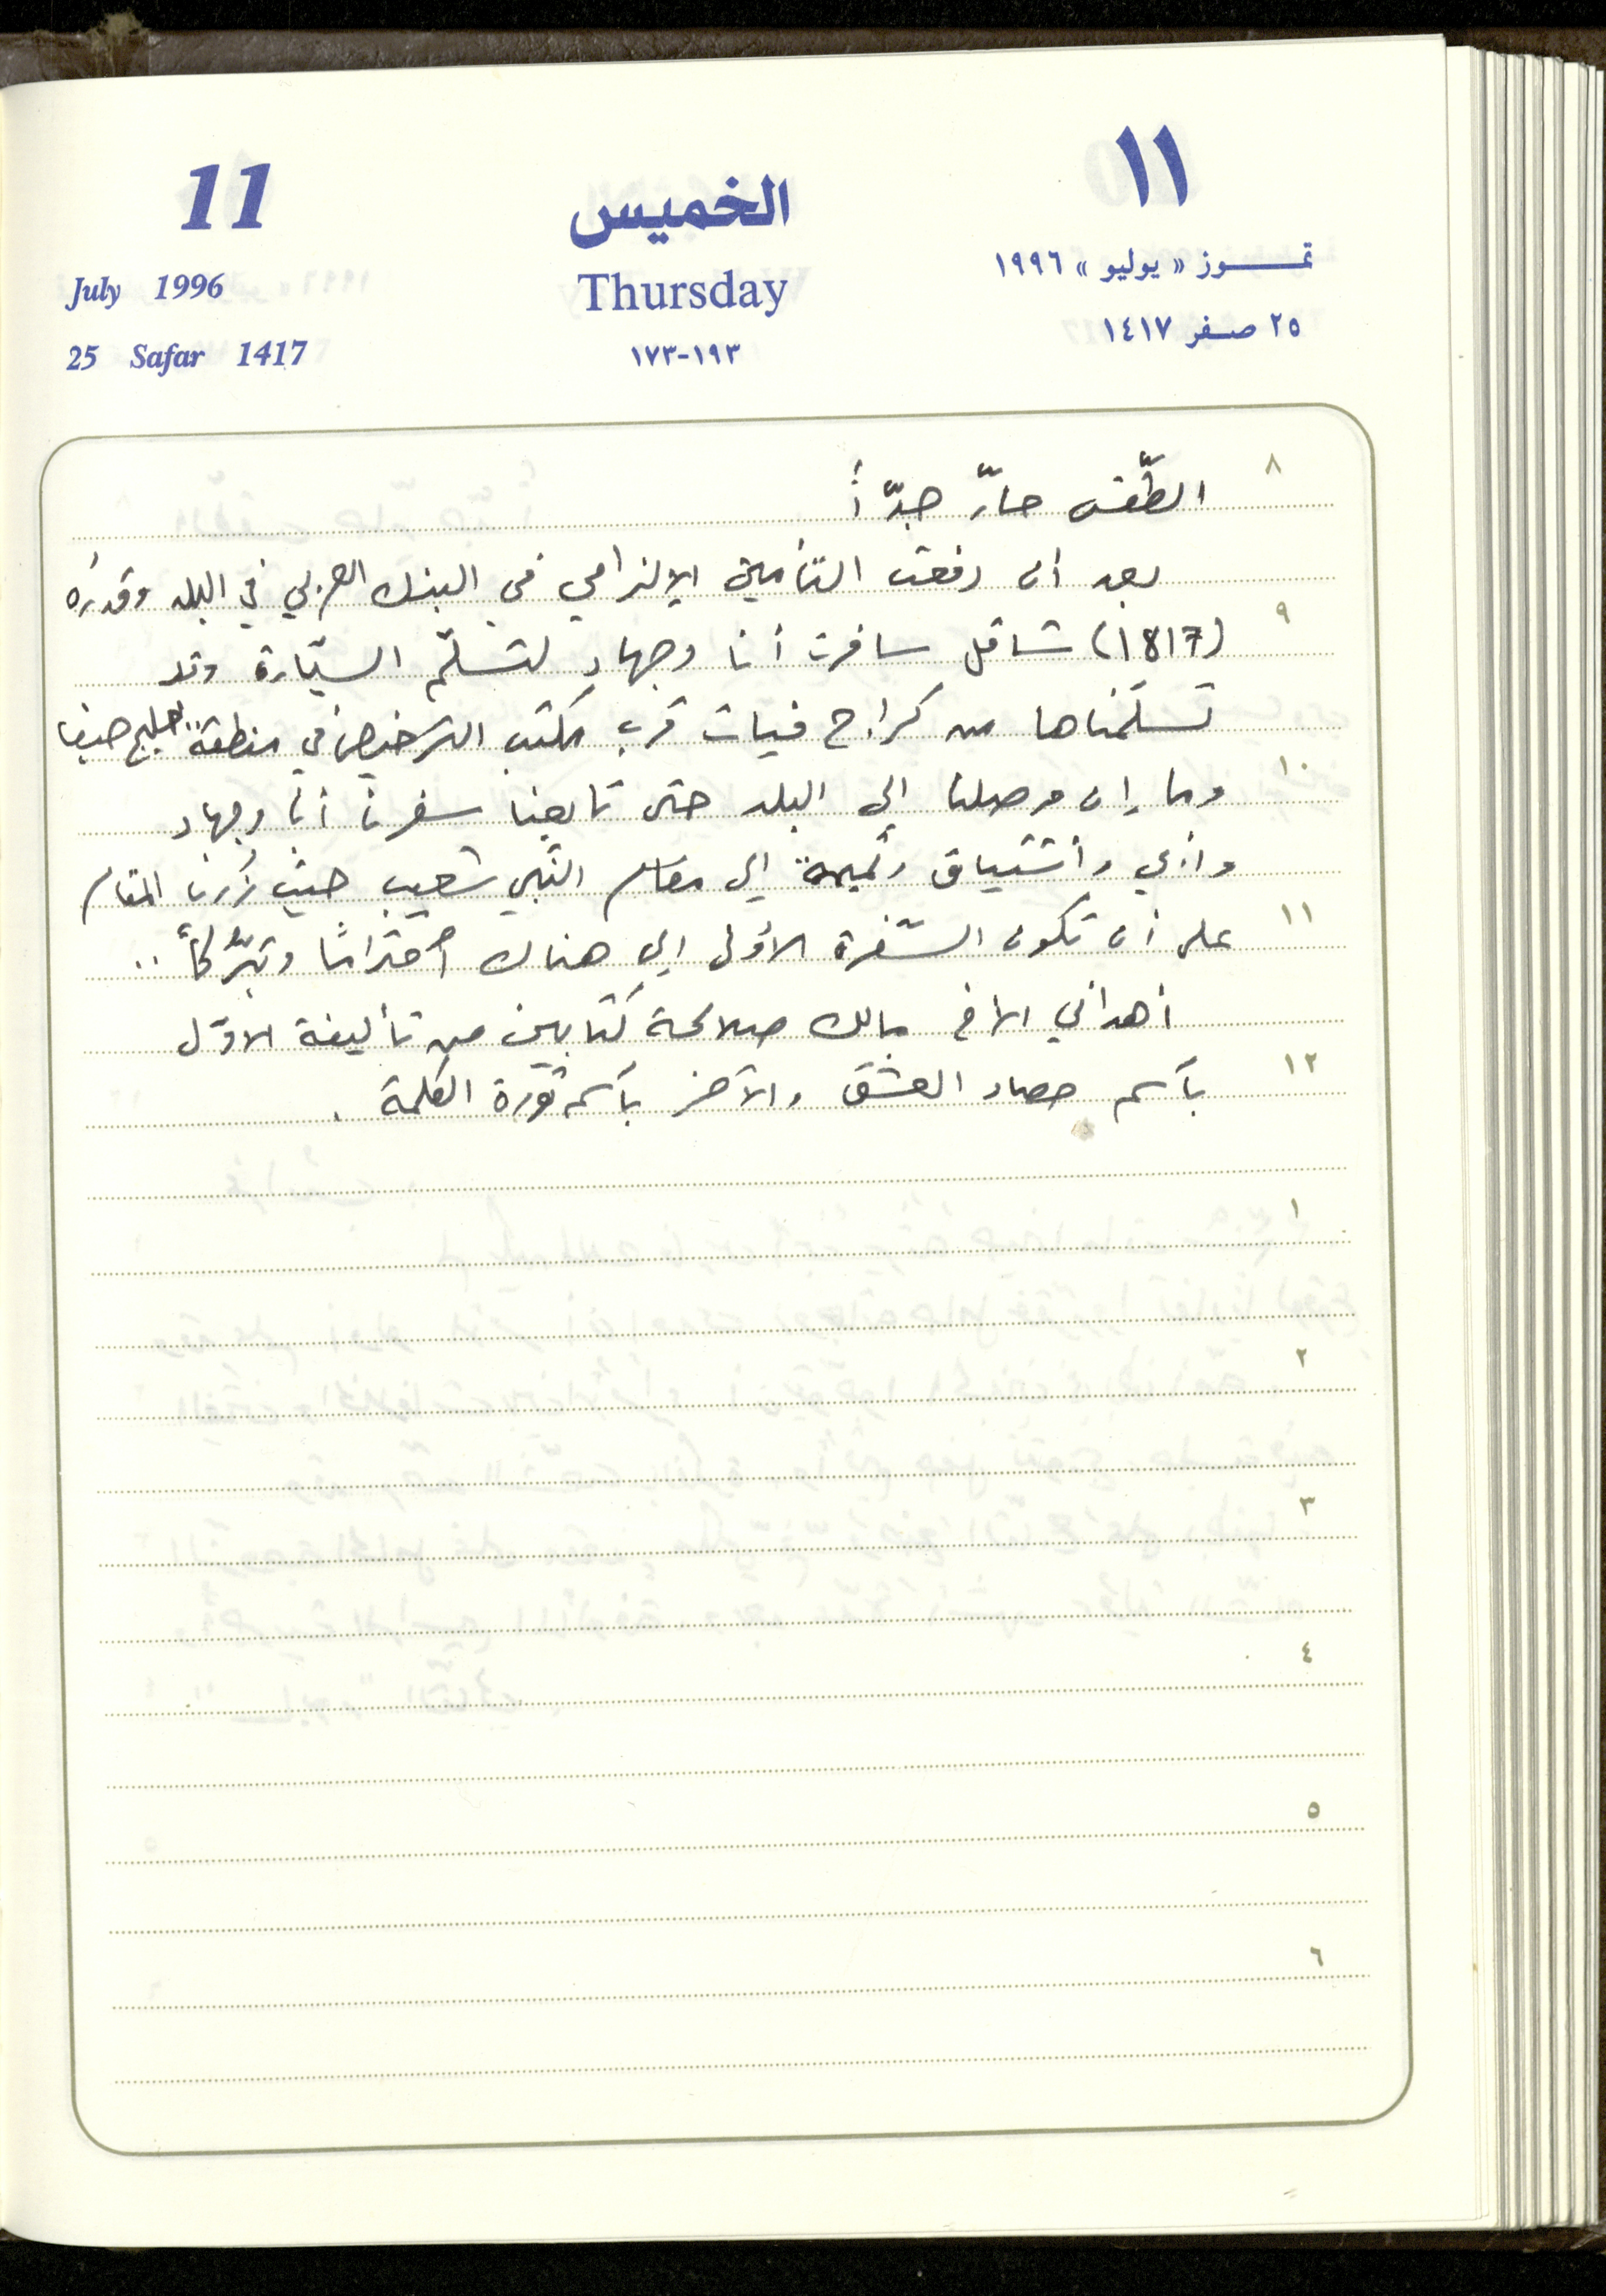 11
١١
الخميس
July 1996
Thursday
تمـــوز « يوليو » ١٩٩٦
25 Safar 1417
١٩٣-١٧٣
٢٥ صـفر ١٤١٧
٨
الطّقس حارّ جدّاً
بعد أن دفعت التأمين الإلزامي في البنك العربي في البلد وقدرُه
٩
(1817) شاقل سافرت أنا وجهاد لتسلّم السيّارة وقد
تسلّمناها من كراج فيات قرب مكتب الترخيص في منطقة خليج حيفا
١٠
وما إن وصلنا إلى البلد حتى تابعنا سفرنا أنا وجهاد
وأشتياق إلى مقام النّبي شعيب حيث زرنا المقام
١١
على أن تكون السّفرة الأولى إلى هناك أحتراماً وتبرُّكاً ..
أهداني الأخ مالك صلالحة كتابين من تأليفة الأوّل
١٢
بآسم حصاد العشق والآخر بآسم ثورة الكلمة .
١
٢
٣
٤
٥
٦